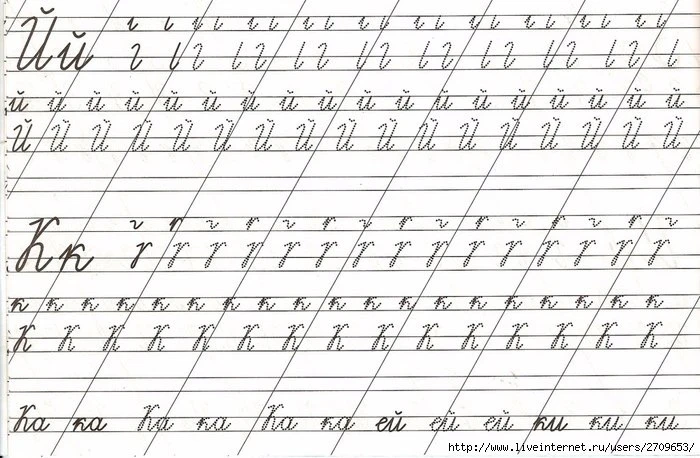 Й й
й й й й й й й й й й й й й й й й й й
Й Й Й Й Й Й Й Й Й Й Й Й Й Й Й Й Й
К к
к к к к к к к к к к к к к к к к к к к
К К К К К К К К К К К К К К К
Ка ка Ка ка Ка ка ей ей ей ки ки ки
http://www.liveinternet.ru/users/2709653/